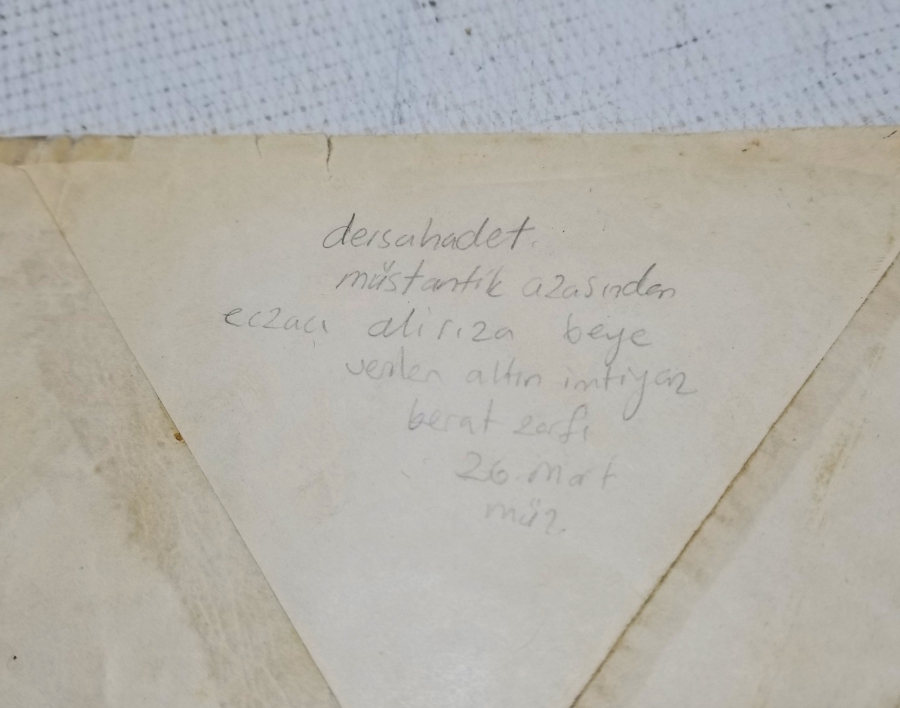 dersahadet.
müstantik azasından
eczacı ali rıza beye
verilen altın imtiyaz
berat zarfı
26 mart
müz.